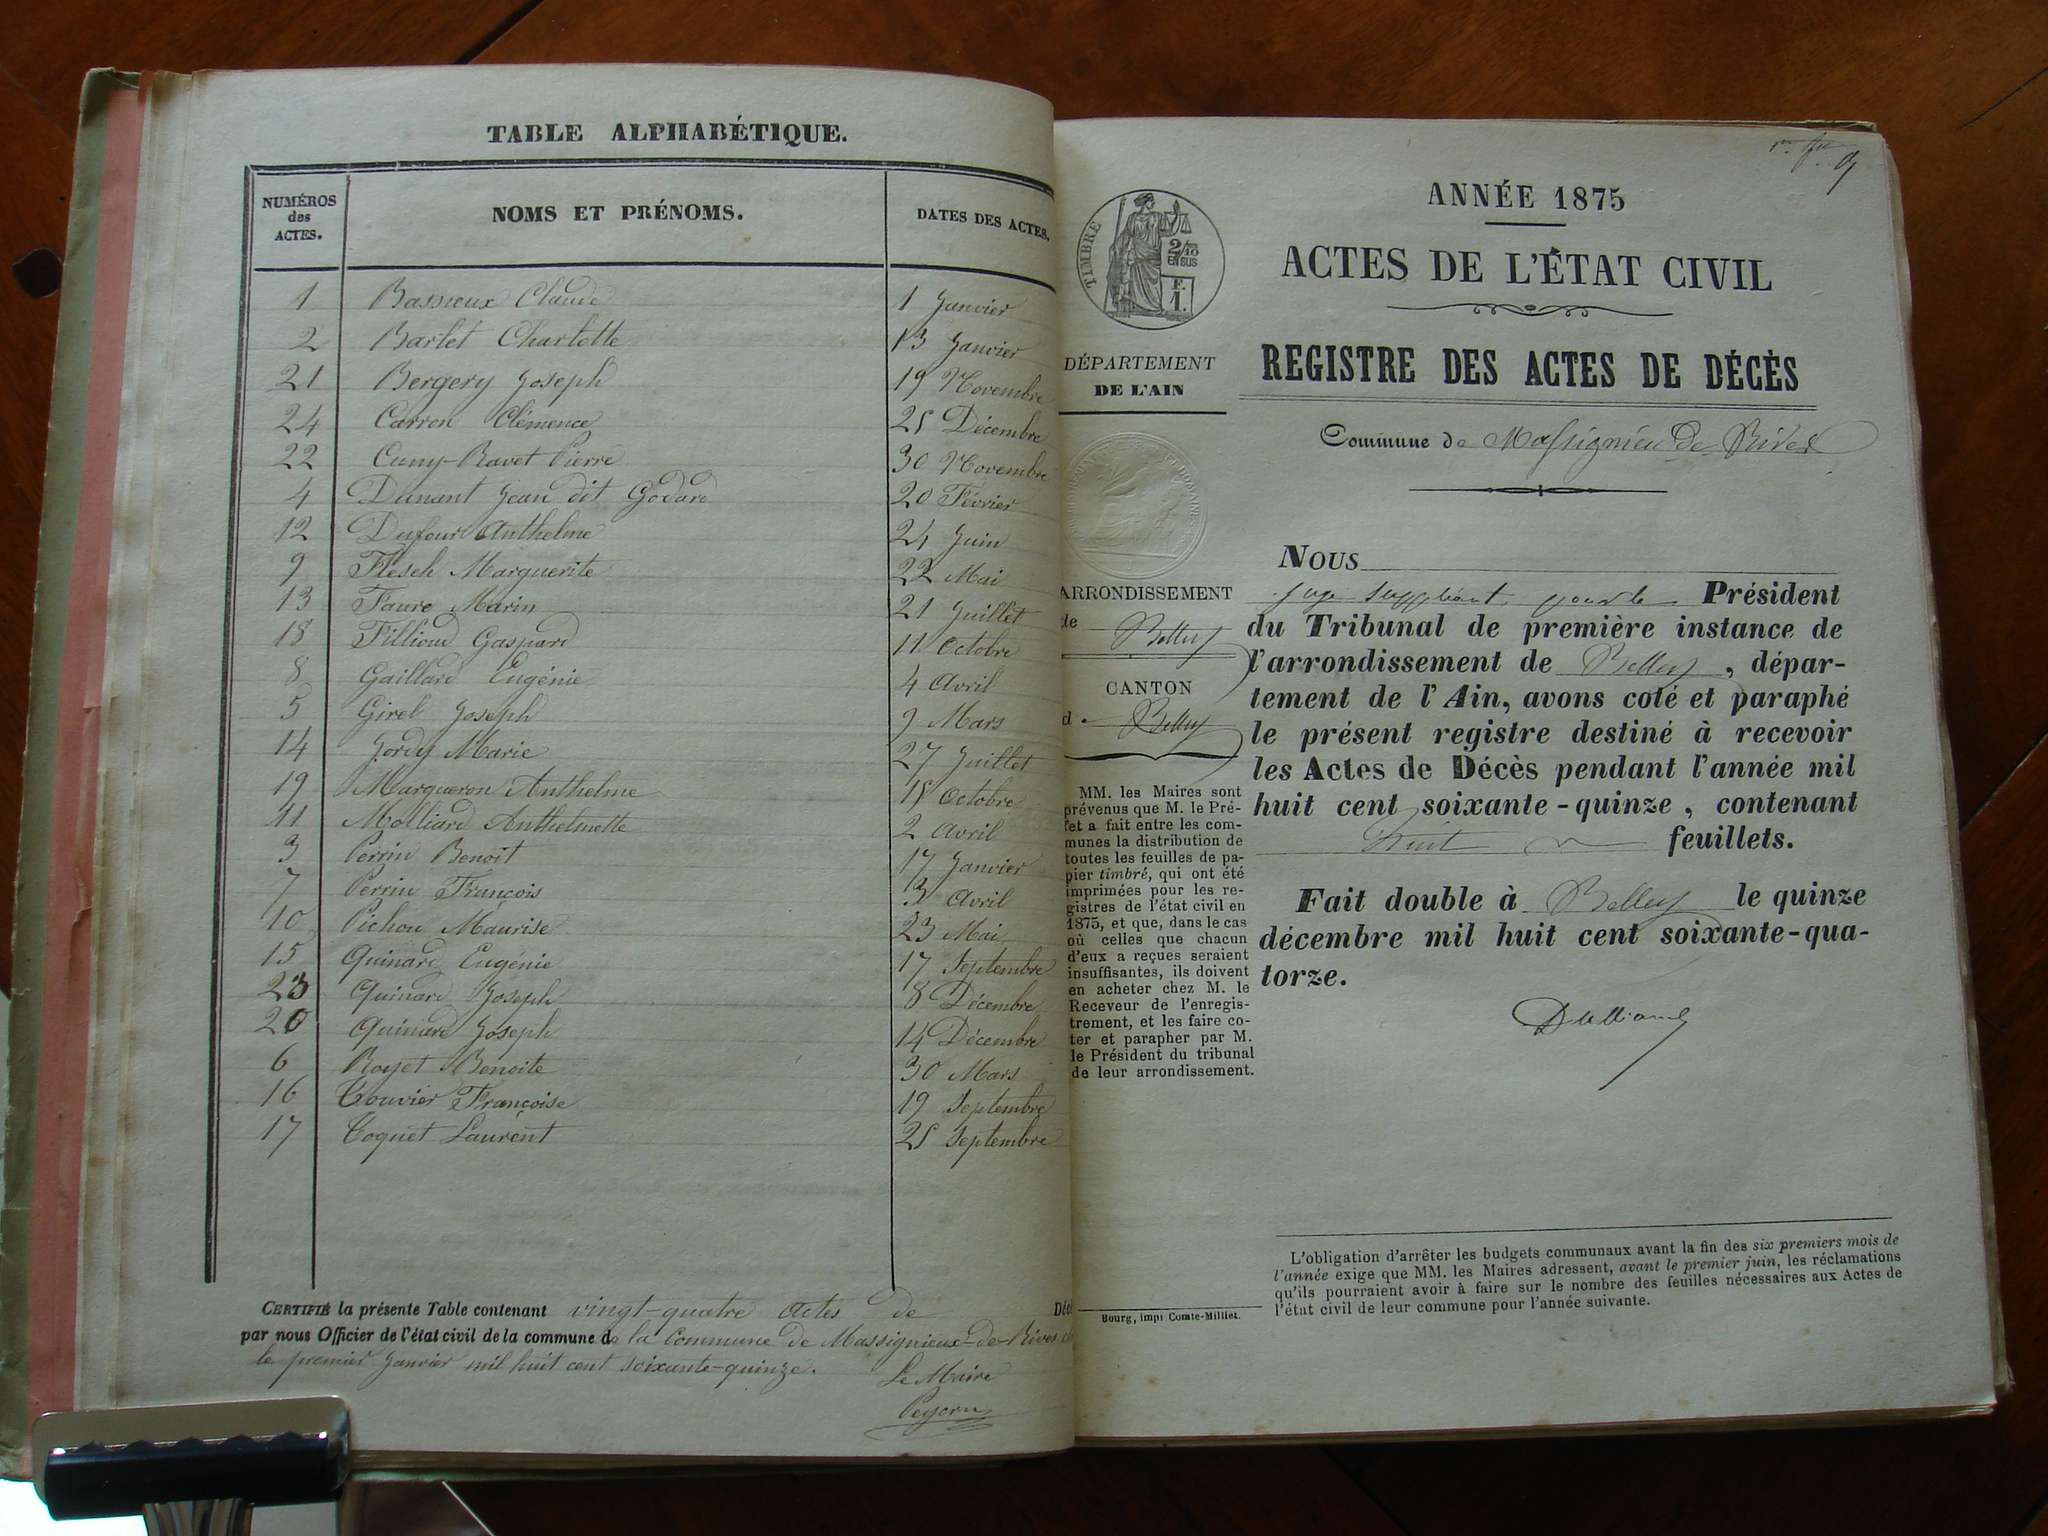 TABLE ALPHABÉTIQUE.
NUMÉROS des ACTES. NOMS ET PRÉNOMS. DATES DES ACTES.
1 Bassieux Claude 1 Janvier
2 Barlet Charlotte 13 Janvier
21 Bergery Joseph 19 Novembre
24 Carron Clémence 25 Décembre
22 Cuny-Ravet Pierre 30 Novembre
4 Dunant Jean dit Godard 20 Février
12 Dufour Anthelme 24 Juin
9 Flesch Marguerite 22 Mai
13 Faure Marin 21 Juillet
18 Filliond Gaspard 11 Octobre
8 Gaillard Eugénie 4 Avril
5 Girel Joseph 9 Mars
14 Jordy Marie 27 Juillet
19 Margueron Anthelme 15 Octobre
11 Molliard Anthelmette 2 Avril
3 Perrin Benoit 17 Janvier
7 Perrin François 3 Avril
10 Pichon Maurise 23 Mai
15 Quinard Eugénie 17 Septembre
23 Quinard Joseph 8 Décembre
20 Quinard Joseph 14 Décembre
6 Royet Benoite 30 Mars
16 Touvier Françoise 19 Septembre
17 Toquet Laurent 25 Septembre
CERTIFIÉ la présente Table contenant vingt-quatre actes de Déc
par nous Officier de l'état civil de la commune de la Commune de Massignieux-de-Rives
le premier Janvier mil huit cent soixante-quinze.
Le Maire
Peysson
TIMBRE
2/10
EN SUS
F.
1.
DÉPARTEMENT
DE L'AIN
ARRONDISSEMENT
de Belley
CANTON
d Belley
MM. les Maires sont
prévenus que M. le Pré-
fet a fait entre les com-
munes la distribution de
toutes les feuilles de pa-
pier timbré, qui ont été
imprimées pour les re-
gistres de l'état civil en
1875, et que, dans le cas
où celles que chacun
d'eux a reçues seraient
insuffisantes, ils doivent
en acheter chez M. le
Receveur de l'enregis-
trement, et les faire co-
ter et parapher par M.
le Président du tribunal
de leur arrondissement.
Bourg, impr Comte-Milliet.
ANNÉE 1875
ACTES DE L'ÉTAT CIVIL
REGISTRE DES ACTES DE DÉCÈS
Commune de Massignieu de Rives
NOUS
juge suppléant pour le Président
du Tribunal de première instance de
l'arrondissement de Belley, dépar-
tement de l'Ain, avons coté et paraphé
le présent registre destiné à recevoir
les Actes de Décès pendant l'année mil
huit cent soixante-quinze, contenant
huit feuillets.
Fait double à Belley le quinze
décembre mil huit cent soixante-qua-
torze.
L'obligation d'arrêter les budgets communaux avant la fin des six premiers mois de
l'année exige que MM. les Maires adressent, avant le premier juin, les réclamations
qu'ils pourraient avoir à faire sur le nombre des feuilles nécessaires aux Actes de
l'état civil de leur commune pour l'année suivante.